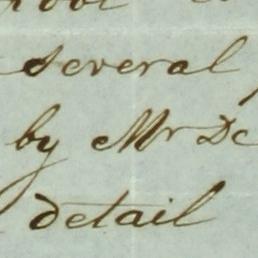 several
by Mr De
detail